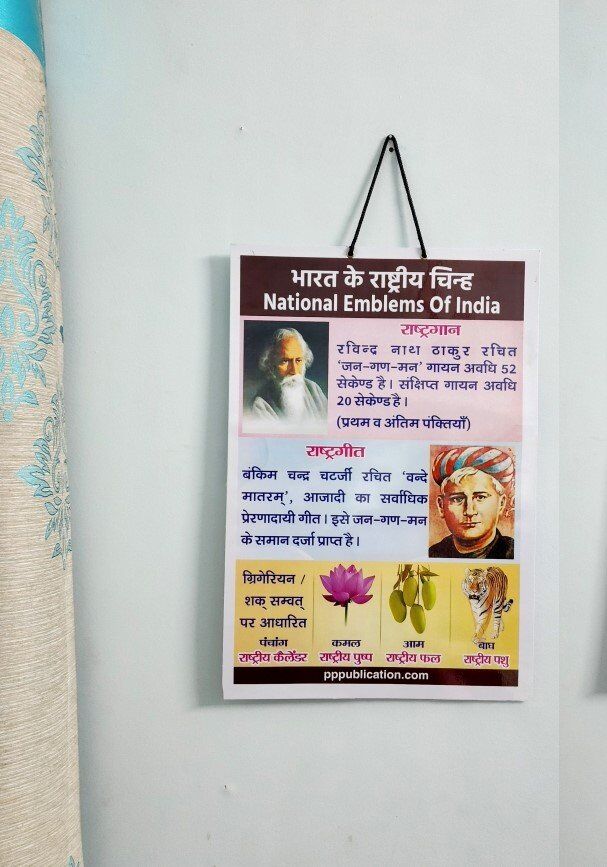 भारत के राष्ट्रीय चिन्ह
National Emblems Of India
राष्ट्रगान
रविन्द्र नाथ ठाकुर रचित
‘जन-गण-मन’ गायन अवधि 52
सेकेण्ड है। संक्षिप्त गायन अवधि
20 सेकेण्ड है।
(प्रथम व अंतिम पंक्तियाँ)
राष्ट्रगीत
बंकिम चन्द्र चटर्जी रचित ‘वन्दे
मातरम्’, आजादी का सर्वाधिक
प्रेरणादायी गीत। इसे जन-गण-मन
के समान दर्जा प्राप्त है।
ग्रिगेरियन /
शक् सम्वत्
पर आधारित
पंचांग
राष्ट्रीय कैलेंडर
कमल
राष्ट्रीय पुष्प
आम
राष्ट्रीय फल
बाघ
राष्ट्रीय पशु
pppublication.com